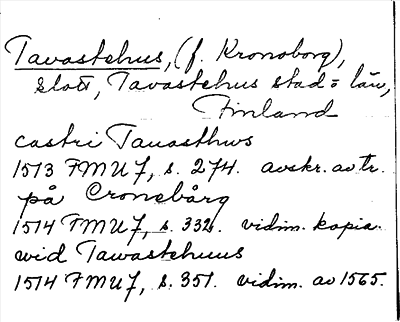 Tavastehus, (f. Kronoborg),
slott, Tavastehus stad = län,
Finland
castri Tauasthws
1513 FMU 7, s. 274. avskr. av tr.
på Croneborg
1514 FMU 7, s. 332. vidim. kopia.
wid Tawastehuus
1514 FMU 7, s. 351. vidim. av 1565.